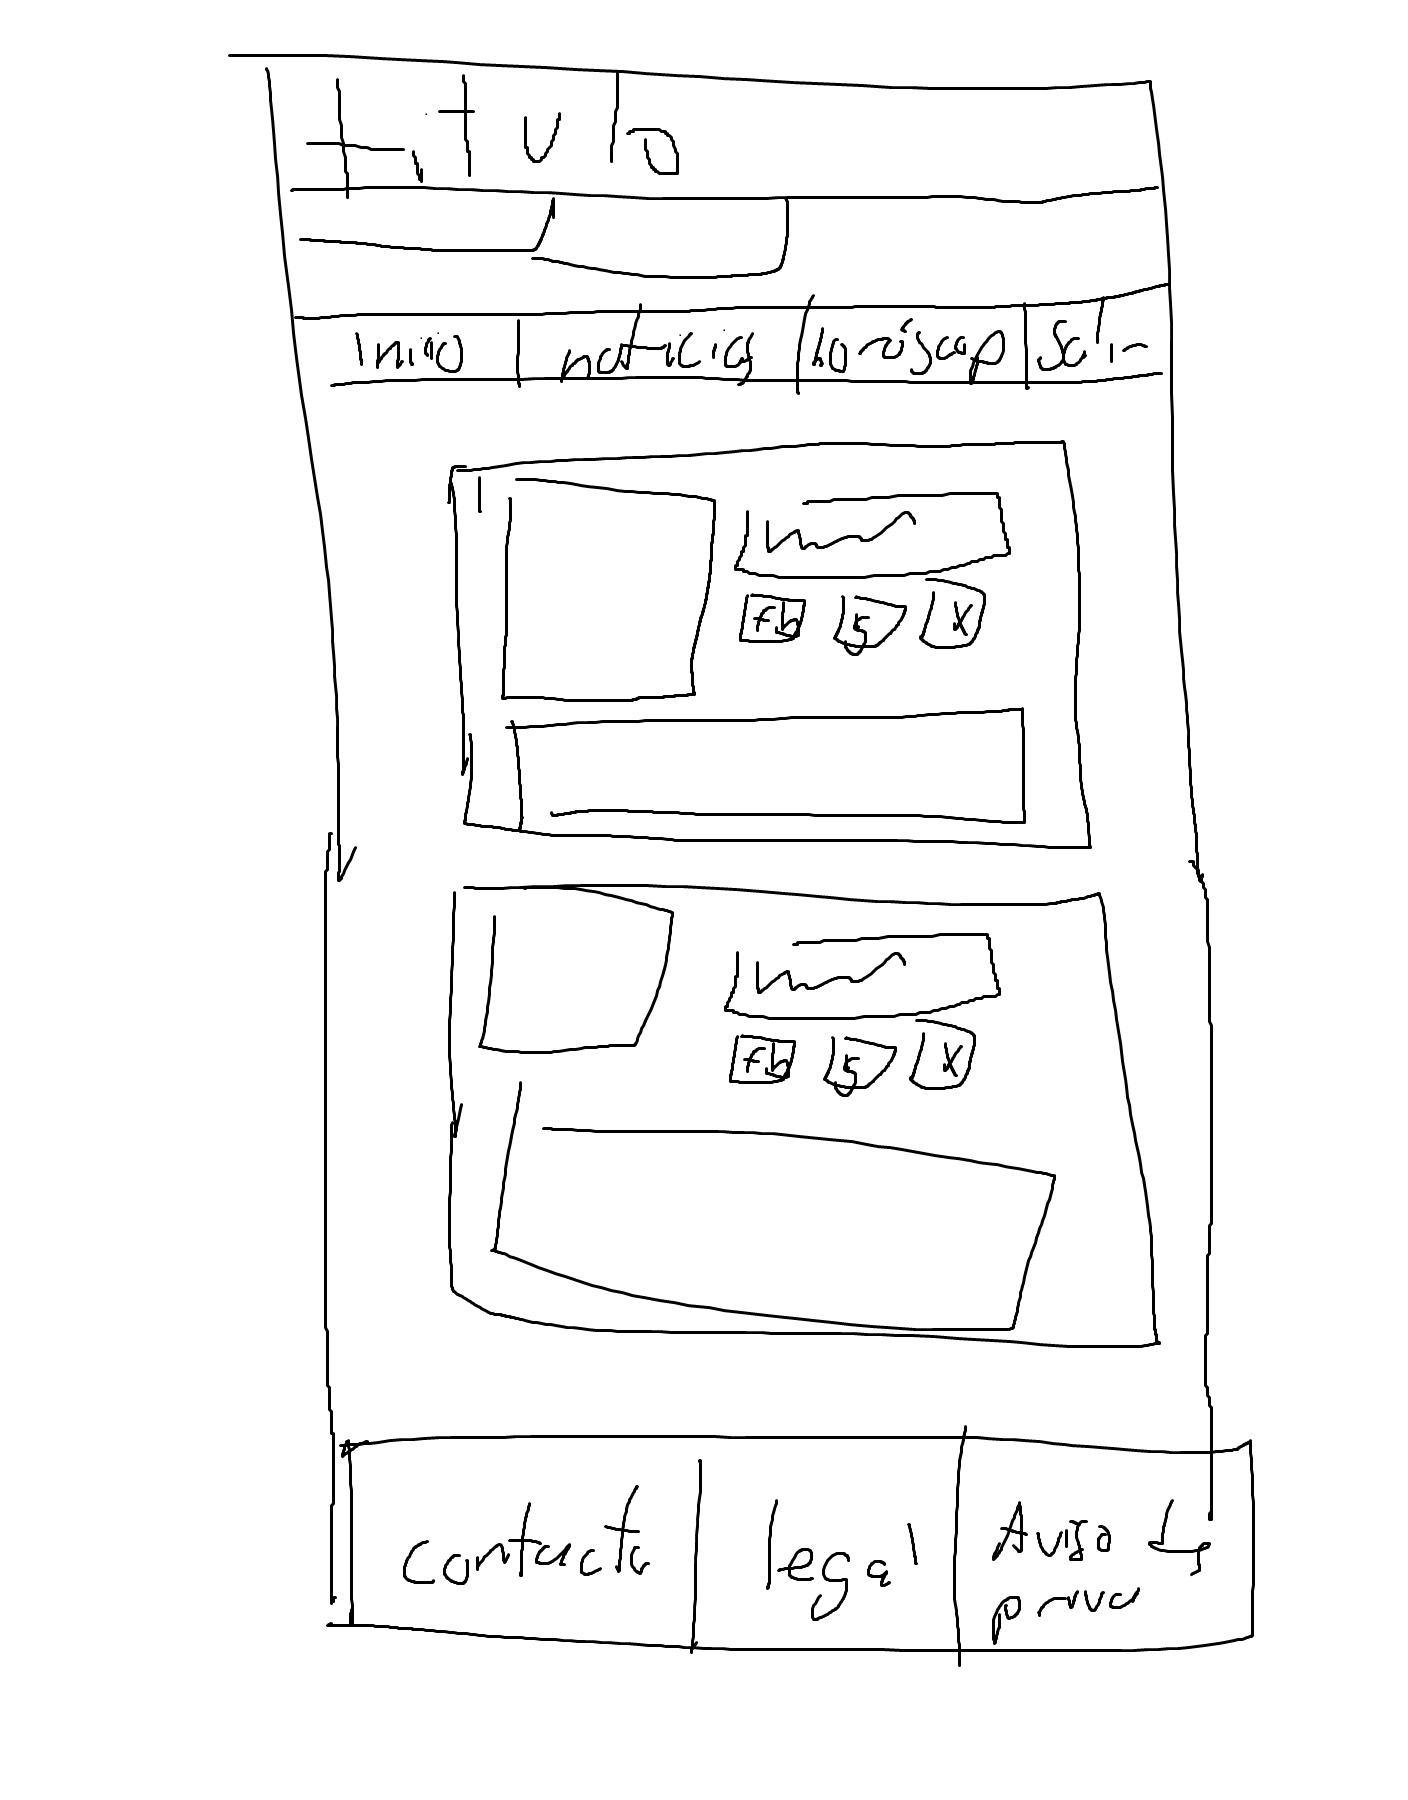 titulo
inicio noticias horóscop Salir
fb g X
fb g X
contacto legal Aviso de
priva